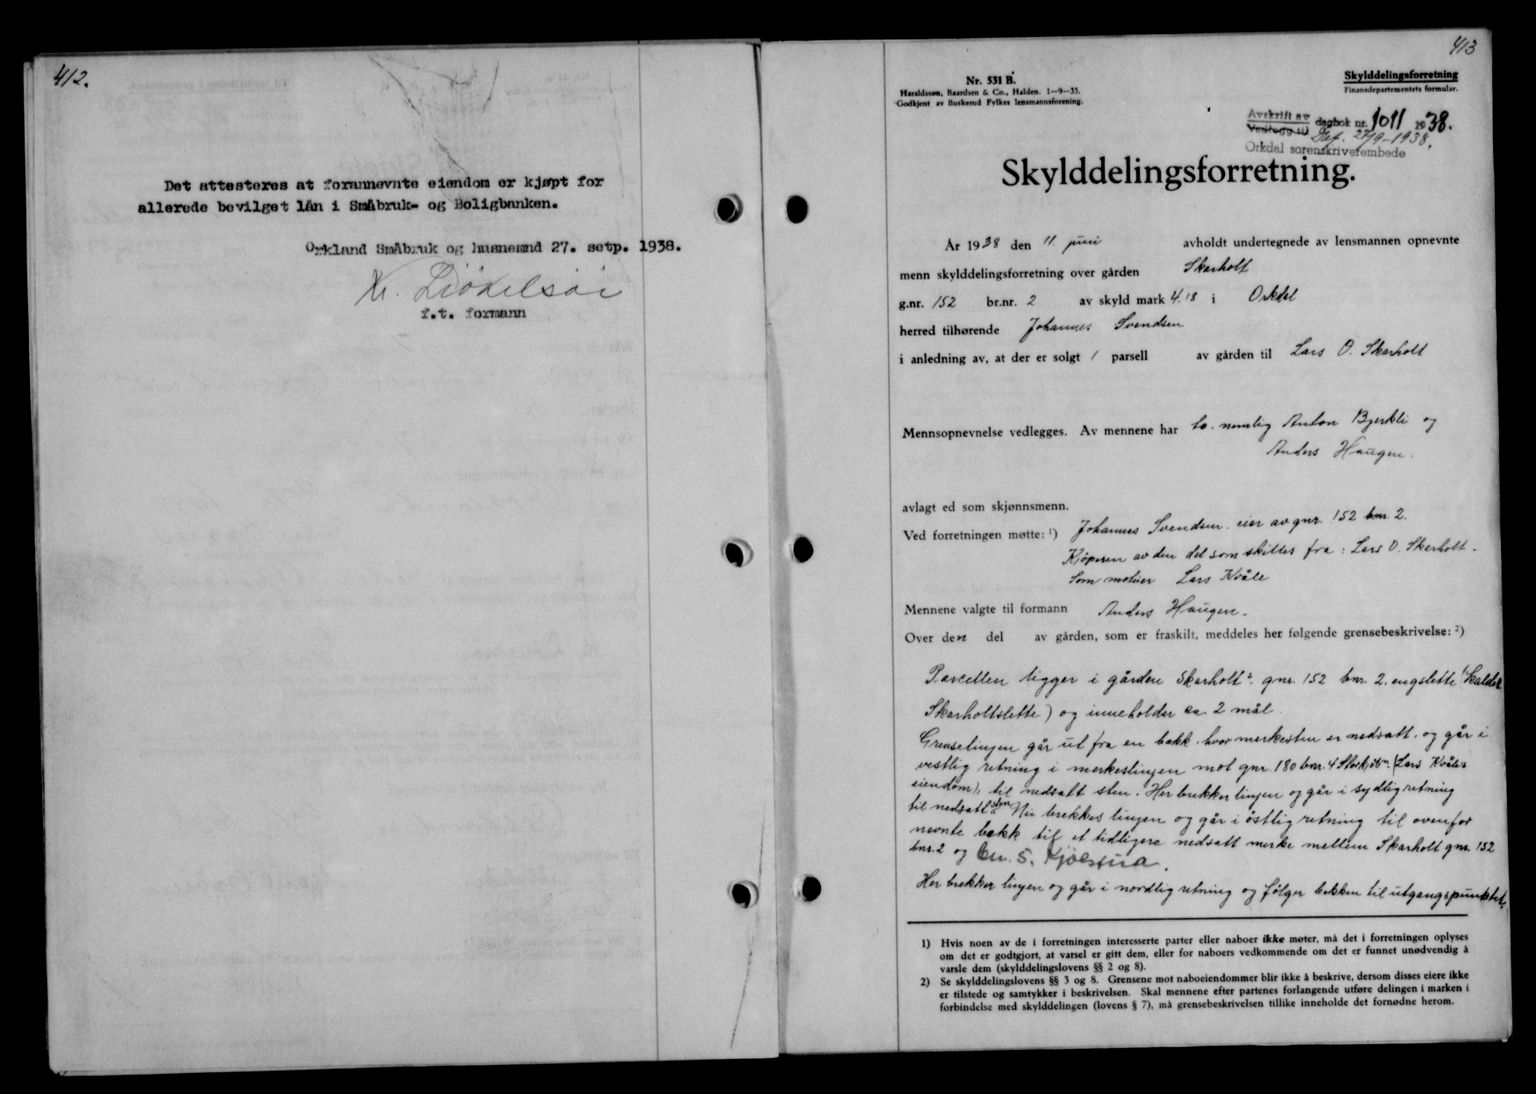 412.
Det attesteres at forannevnte eiendom er kjøpt for
allerede bevilget lån i Småbruk- og Boligbanken.
Orkland Småbruk og husnemnd 27. setp. 1938.
f.t. formann
413
Nr. 531 B.
Haraldssøn, Baardsen & Co., Halden. 1—9—33.
Godkjent av Buskerud Fylkes lensmannsforening.
Skylddelingsforretning
Finansdepartementets formular.
Avskrift av
Vedlegg til dagbok nr. 1011 1938.
Dat. 27/9-1938.
Orkdal sorenskriverembede
Skylddelingsforretning.
År 1938 den 11 juni avholdt undertegnede av lensmannen opnevnte
menn skylddelingsforretning over gården Skarholt
g.nr. 152 br.nr. 2 av skyld mark 4.18 i Orkdal
herred tilhørende Johannes Svendsen
i anledning av, at der er solgt 1 parsell av gården til Lars O. Skarholt
Mennsopnevnelse vedlegges. Av mennene har to. nemlig Anton Bjerkli og
Anders Haugen.
avlagt ed som skjønnsmenn.
Ved forretningen møtte: 1) Johannes Svendsen. eier av gnr. 152 bnr. 2.
Kjöperen av den del som skilles fra: Lars O. Skarholt.
Som Lars Kvåle
Mennene valgte til formann Anders Haugen.
Over den del av gården, som er fraskilt, meddeles her følgende grensebeskrivelse: 2)
Parcellen ligger i gården Skarholt. gnr. 152 bnr. 2. engslette
Skarholtslette) og inneholder ca 2 mål.
Grenselinjen går ut fra en bekk. hvor merkesten er nedsatt. og går i
vestlig retning i merkeslinjen mot gnr. 180 bnr. 4 (Lars Kvåles
eiendom), til nedsatt sten. Her brekker linjen og går i sydlig retning
til nedsatt sten Nu brekkes linjen og går i östlig retning til ovenfor
nevnte bekk til et tidligere nedsatt merke mellem Skarholt gnr. 152
bnr. 2 og bnr. 5.
Her brekker linjen og går i nordlig retning og følger bekken til utgangspunktet.
1) Hvis noen av de i forretningen interesserte parter eller naboer ikke møter, må det i forretningen oplyses
om det er godtgjort, at varsel er gitt dem, eller for naboers vedkommende om det er funnet unødvendig å
varsle dem (skylddelingslovens §§ 2 og 8).
2) Se skylddelingslovens §§ 3 og 8. Grensene mot naboeiendommer blir ikke å beskrive, dersom disses eiere ikke
er tilstede og samtykker i beskrivelsen. Skal mennene efter partenes forlangende utføre delingen i marken i
forbindelse med skylddelingen (lovens § 7), må grensebeskrivelsen tillike inneholde det fornødne herom.